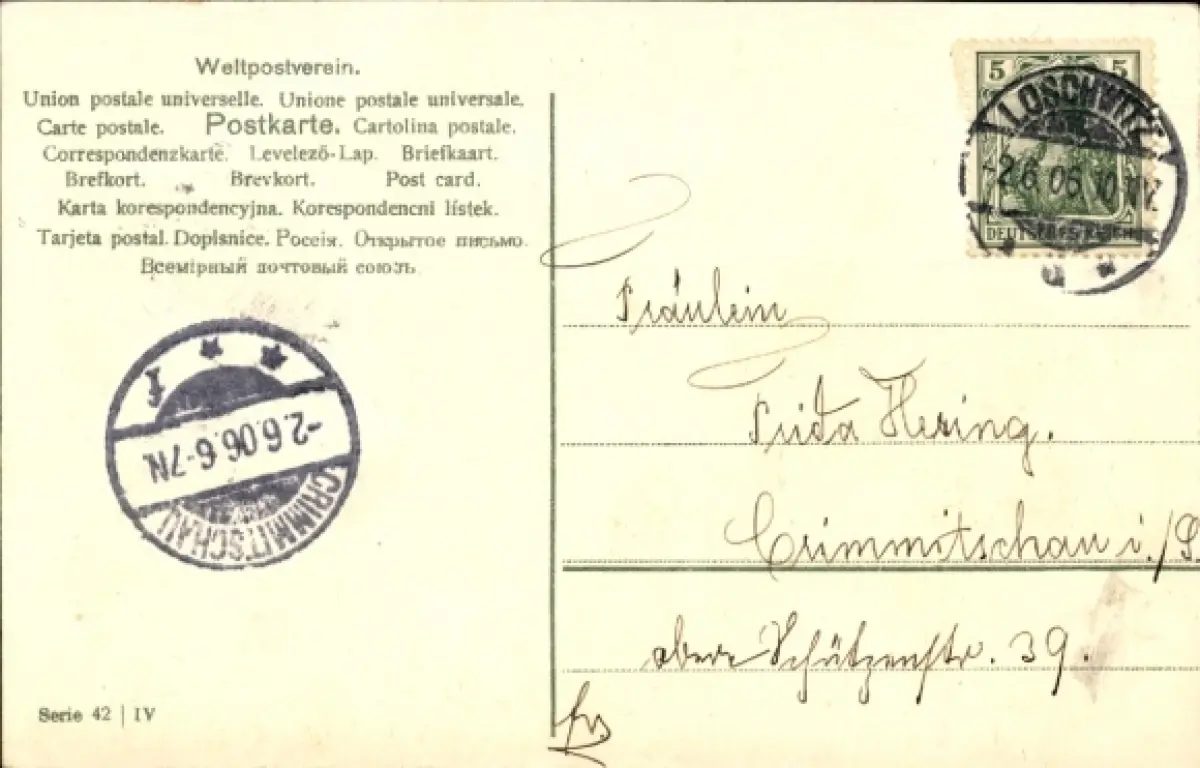 Weltpostverein.
Union postale universelle. Unione postale universale.
Carte postale. Postkarte. Cartolina postale.
Correspondenzkarte. Levelező-Lap. Briefkaart.
Brefkort. Brevkort. Post card.
Karta korespondencyjna. Korespondencni lístek.
Tarjeta postal. Dopisnice. Россія. Открытое письмо.
Всемірный почтовый союзъ.
5 5
DEUTSCHES REICH
LOSCHWITZ
-2.6.06.
Fräulein
Frida Hering.
Crimmitschau i./S.
obere Schützenstr. 39.
CRIMMITSCHAU
-2.6.06.6-7N.
Serie 42 | IV